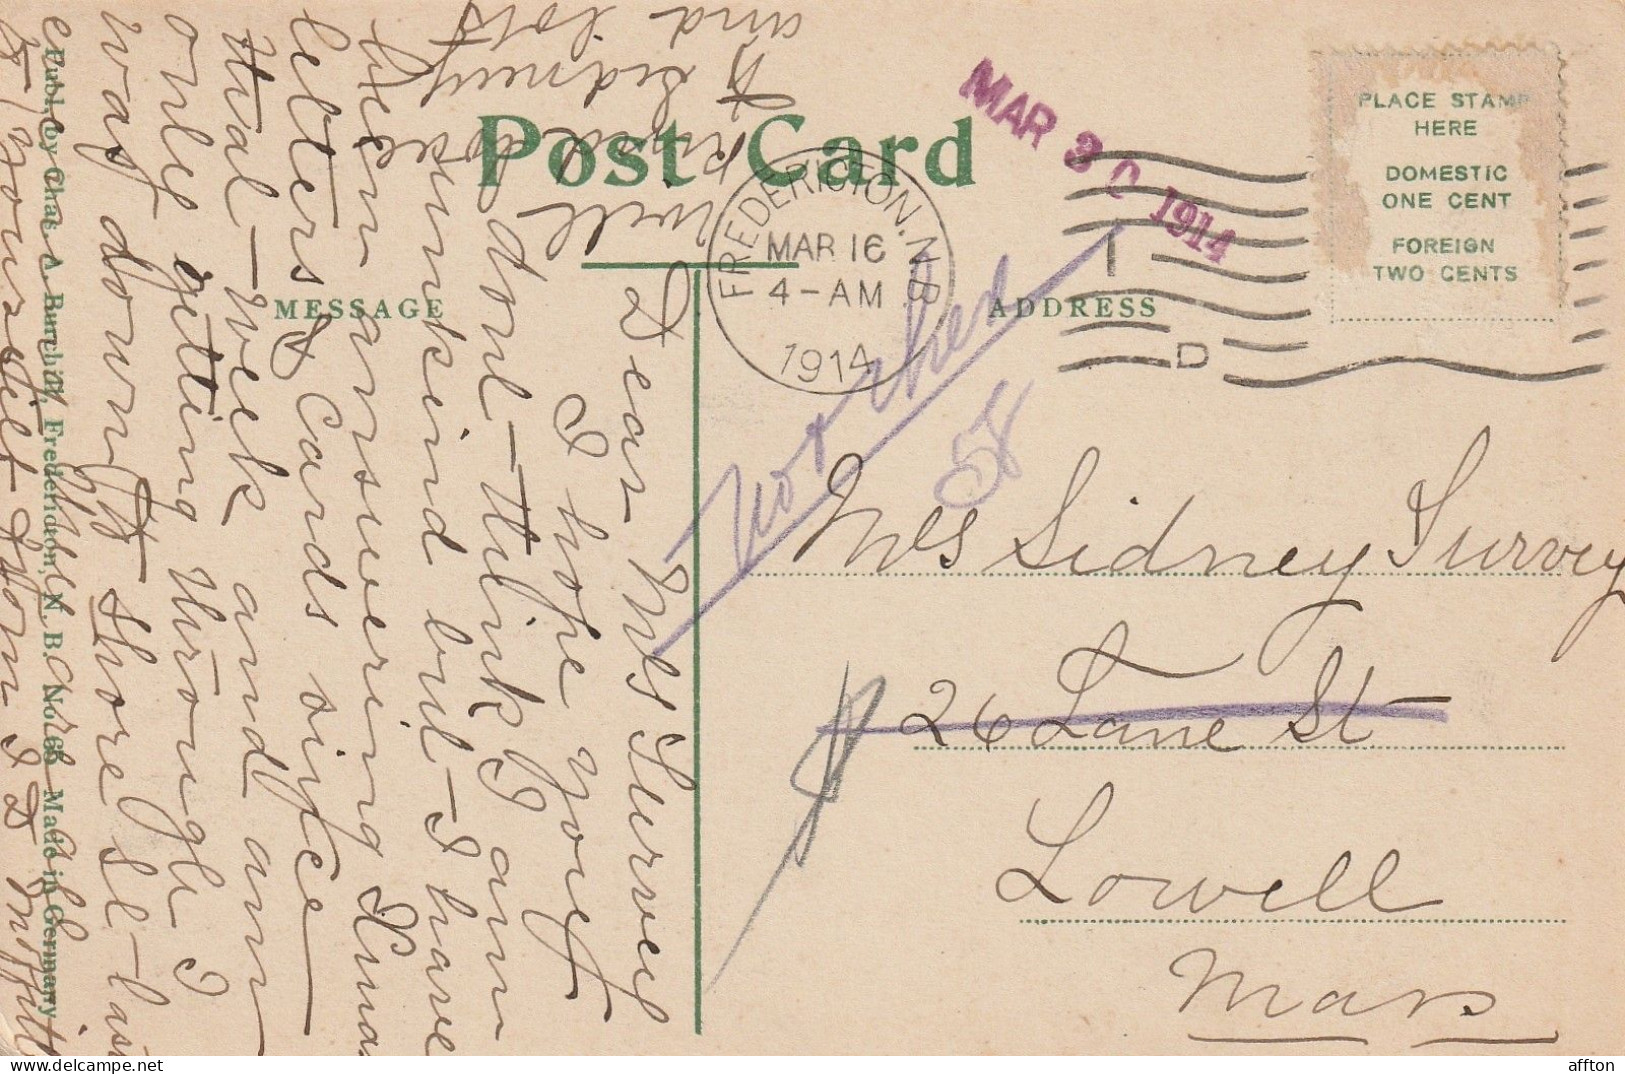 Post Card
MESSAGE
ADDRESS
PLACE STAMP
HERE
DOMESTIC
ONE CENT
FOREIGN
TWO CENTS
FREDERICTON. N.B
MAR 16
4-AM
1914
D
MAR 30 1914
58
Mrs Sidney Survey
26 Lane St
Lowell
Mass
Dear Mrs Survey
I hope you
dont think I am
unkind but I have
been answering Xmas
letters & Cards since
that week and am
only getting through I
was down to Shore St last
and
Sidney
will
Publ. by Chas. A. Burchill, Fredericton, N. B. No. 65 Made in Germany
affton